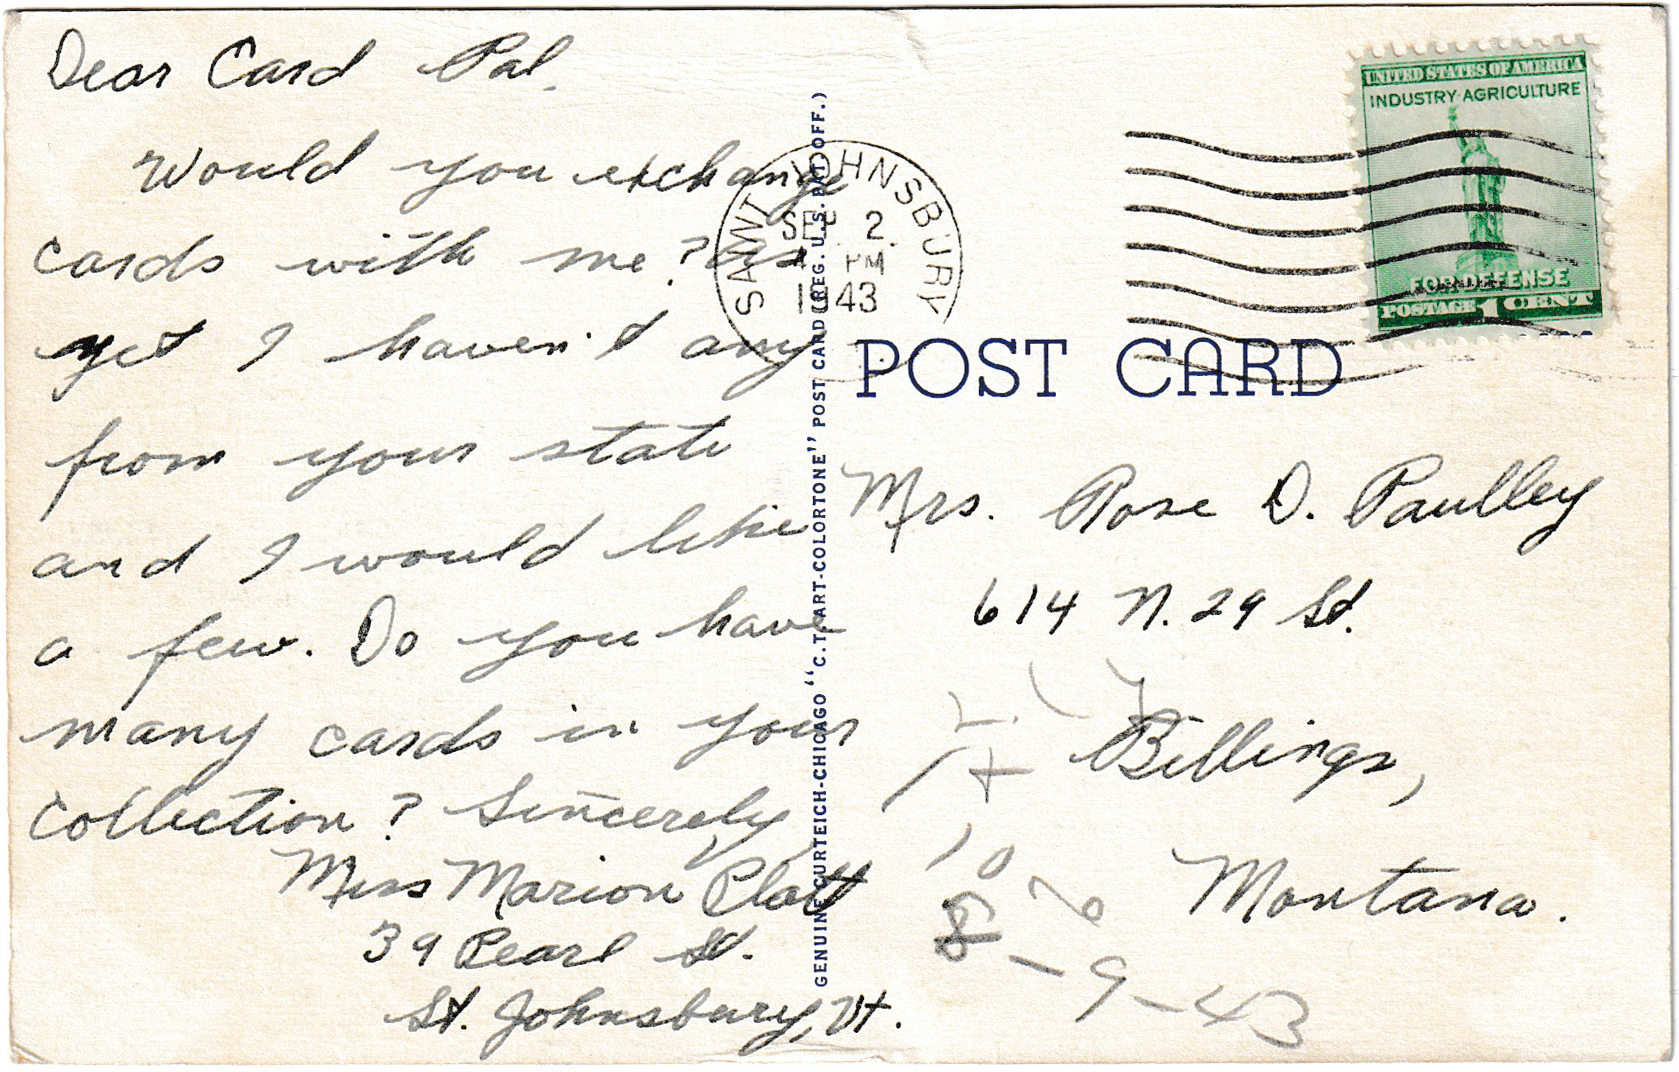 Dear Card Pal,
Would you exchange
cards with me? As
yet I haven't any
from your state
and I would like
a few. Do you have
many cards in your
collection? Sincerely,
Miss Marion Platt
39 Pearl St.
St. Johnsbury, Vt.
GENUINE CURTEICH-CHICAGO "C.T. ART-COLORTONE" POST CARD (REG. U.S. PAT. OFF.)
SAINT JOHNSBURY
SEP 2
PM
1943
UNITED STATES OF AMERICA
INDUSTRY · AGRICULTURE
FOR DEFENSE
POSTAGE 1 CENT
POST CARD
Mrs. Rose D. Paulley
614 N. 29 St.
Billings,
Montana.
- 9 - 43